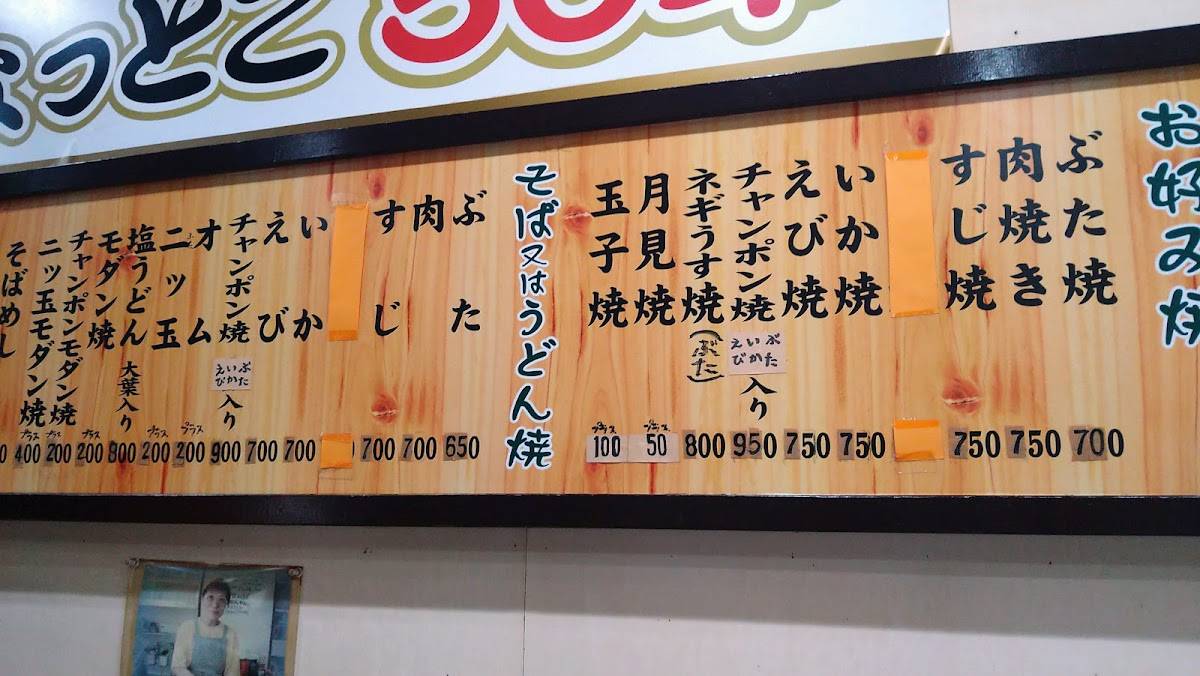 っとこ
お好み焼
ぶた焼 700
肉焼き 750
すじ焼 750
いか焼 750
えび焼 750
チャンポン焼 ぶた いか えび 入り 950
ネギうす焼(ぶた) 800
月見焼 プラス 50
玉子焼 プラス 100
そば又はうどん焼
ぶた 650
肉 700
すじ 700
いか 700
えび 700
チャンポン焼 ぶた いか えび 入り 900
オム プラス 200
ニッ玉 プラス 200
塩うどん 大葉入り 800
モダン焼 プラス 200
チャンポンモダン焼 プラス 200
ニッ玉モダン焼 プラス 400
そばめし